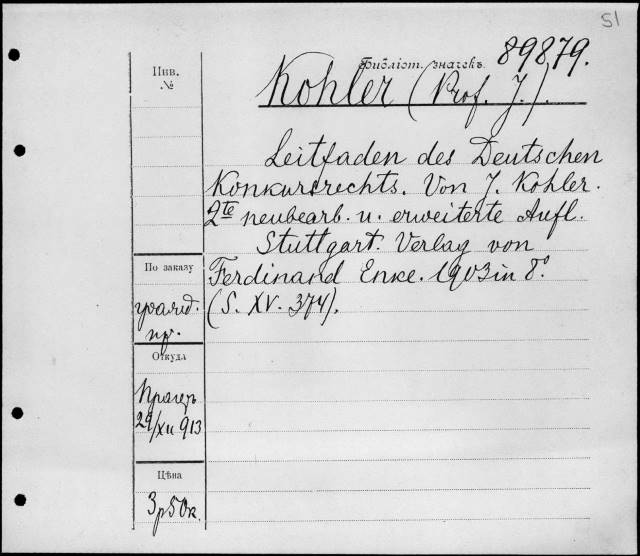 51
Инв.
№
Библіот. значекъ 89879.
Kohler (Prof. J.).
Leitfaden des Deutschen
Konkursrechts. Von J. Kohler.
2te neubearb. u. erweiterte Aufl.
Stuttgart. Verlag von
Ferdinand Enke. 1903 in 8°.
(S. XV. 374).
По заказу
гражд.
пр.
Откуда
Прагеръ
29/XII 913
Цѣна
3р50к.